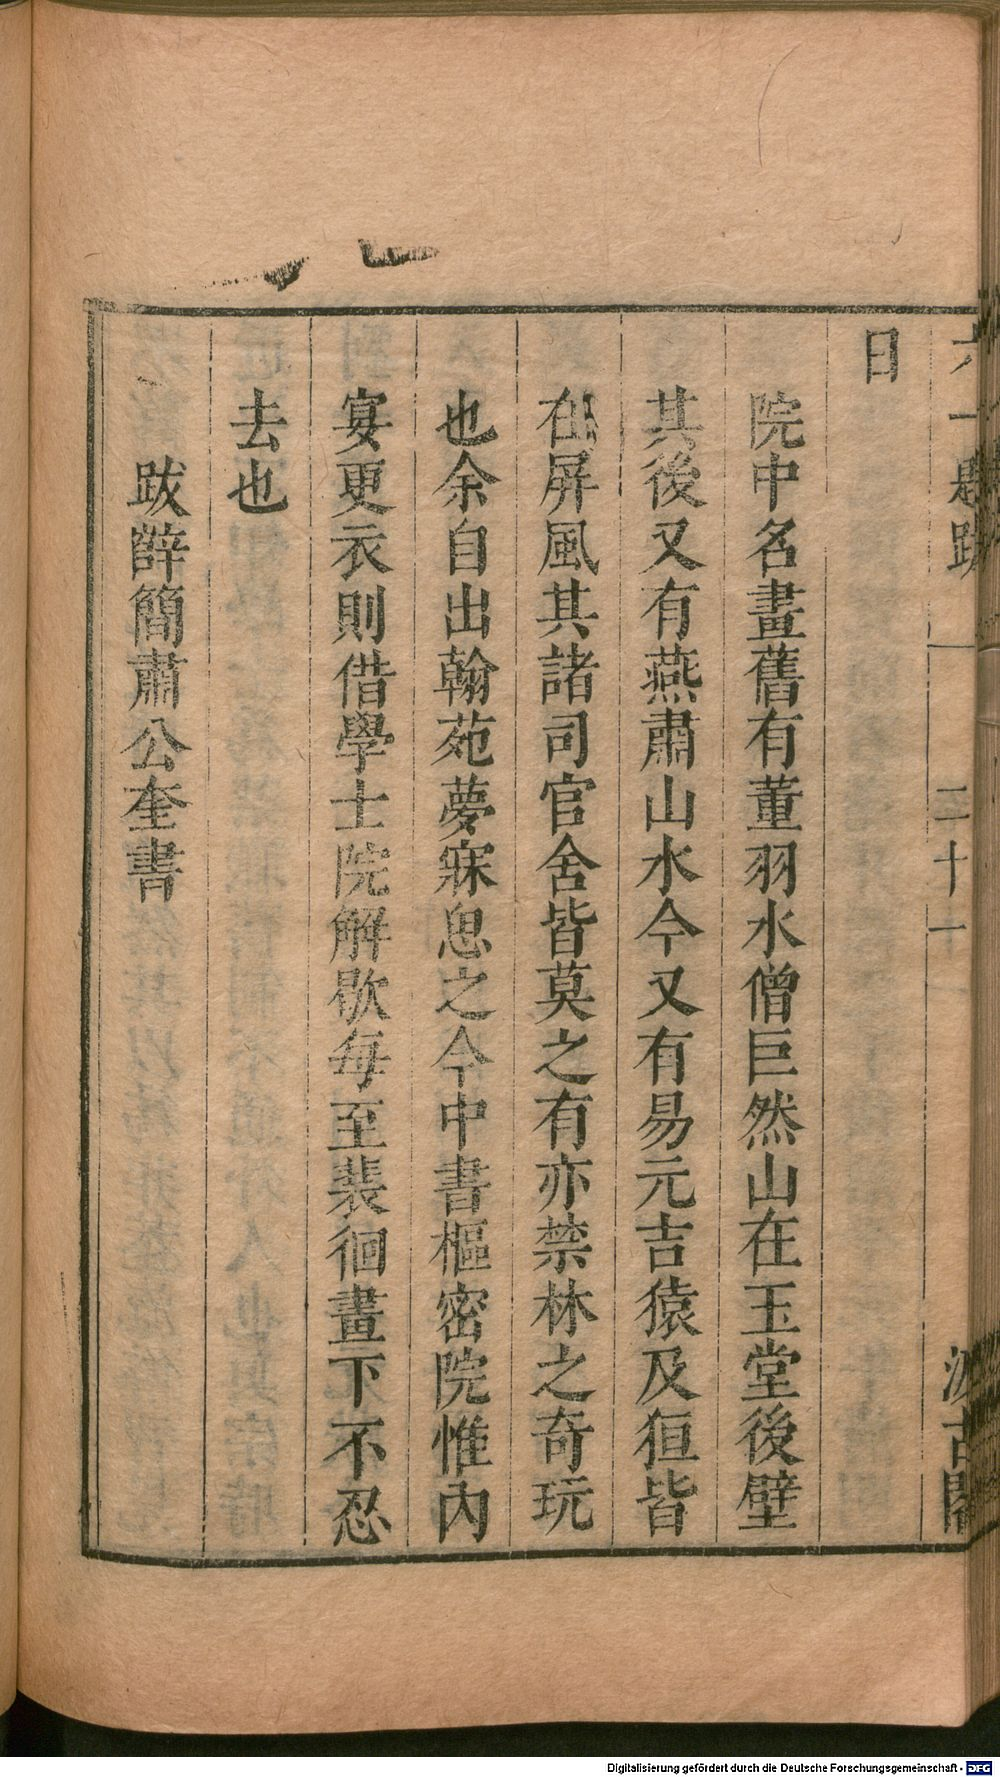 六一題跋
二十一
汲古閣
日
院中名畫舊有董羽水僧巨然山在玉堂後壁
其後又有燕肅山水今又有易元吉猿及狟皆
在屏風其諸司官舍皆莫之有亦禁林之奇玩
也余自出翰苑夢寐思之今中書樞密院惟內
宴更衣則借學士院解歇每至裴徊畫下不忍
去也
跋薛簡肅公奎書
Digitalisierung gefördert durch die Deutsche Forschungsgemeinschaft - DFG